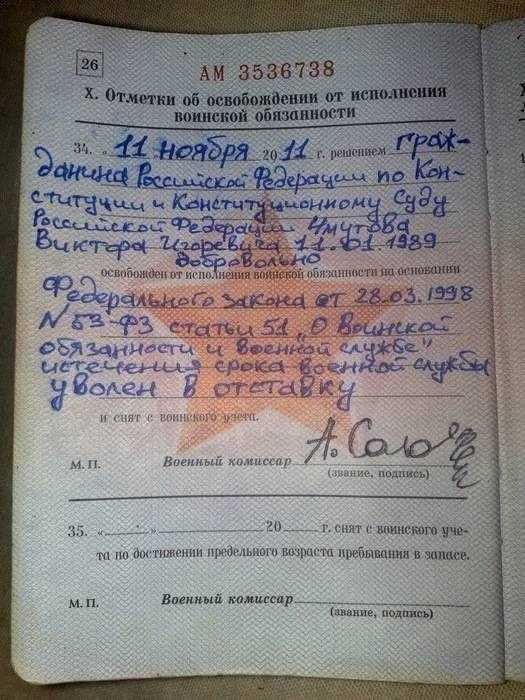 26
АМ 3536738
X. Отметки об освобождении от исполнения
воинской обязанности
34. „ 11 ноября 2011 г. решением граж-
данина Российской Федерации по Кон-
ституции и Конституционному Суду
Российской Федерации Чмутова
Виктора Игоревича 11.01.1989
добровольно
освобожден от исполнения воинской обязанности на основании
Федерального закона от 28.03.1998
N 53-ФЗ статьи 51 „О Воинской
обязанности и военной службе"
истечения срока военной службы
уволен в отставку
и снят с воинского учета.
М. П. Военный комиссар А. Соло
(звание, подпись)
35. « » 20 г. снят с воинского уче-
та по достижении предельного возраста пребывания в запасе.
М. П. Военный комиссар
(звание, подпись)